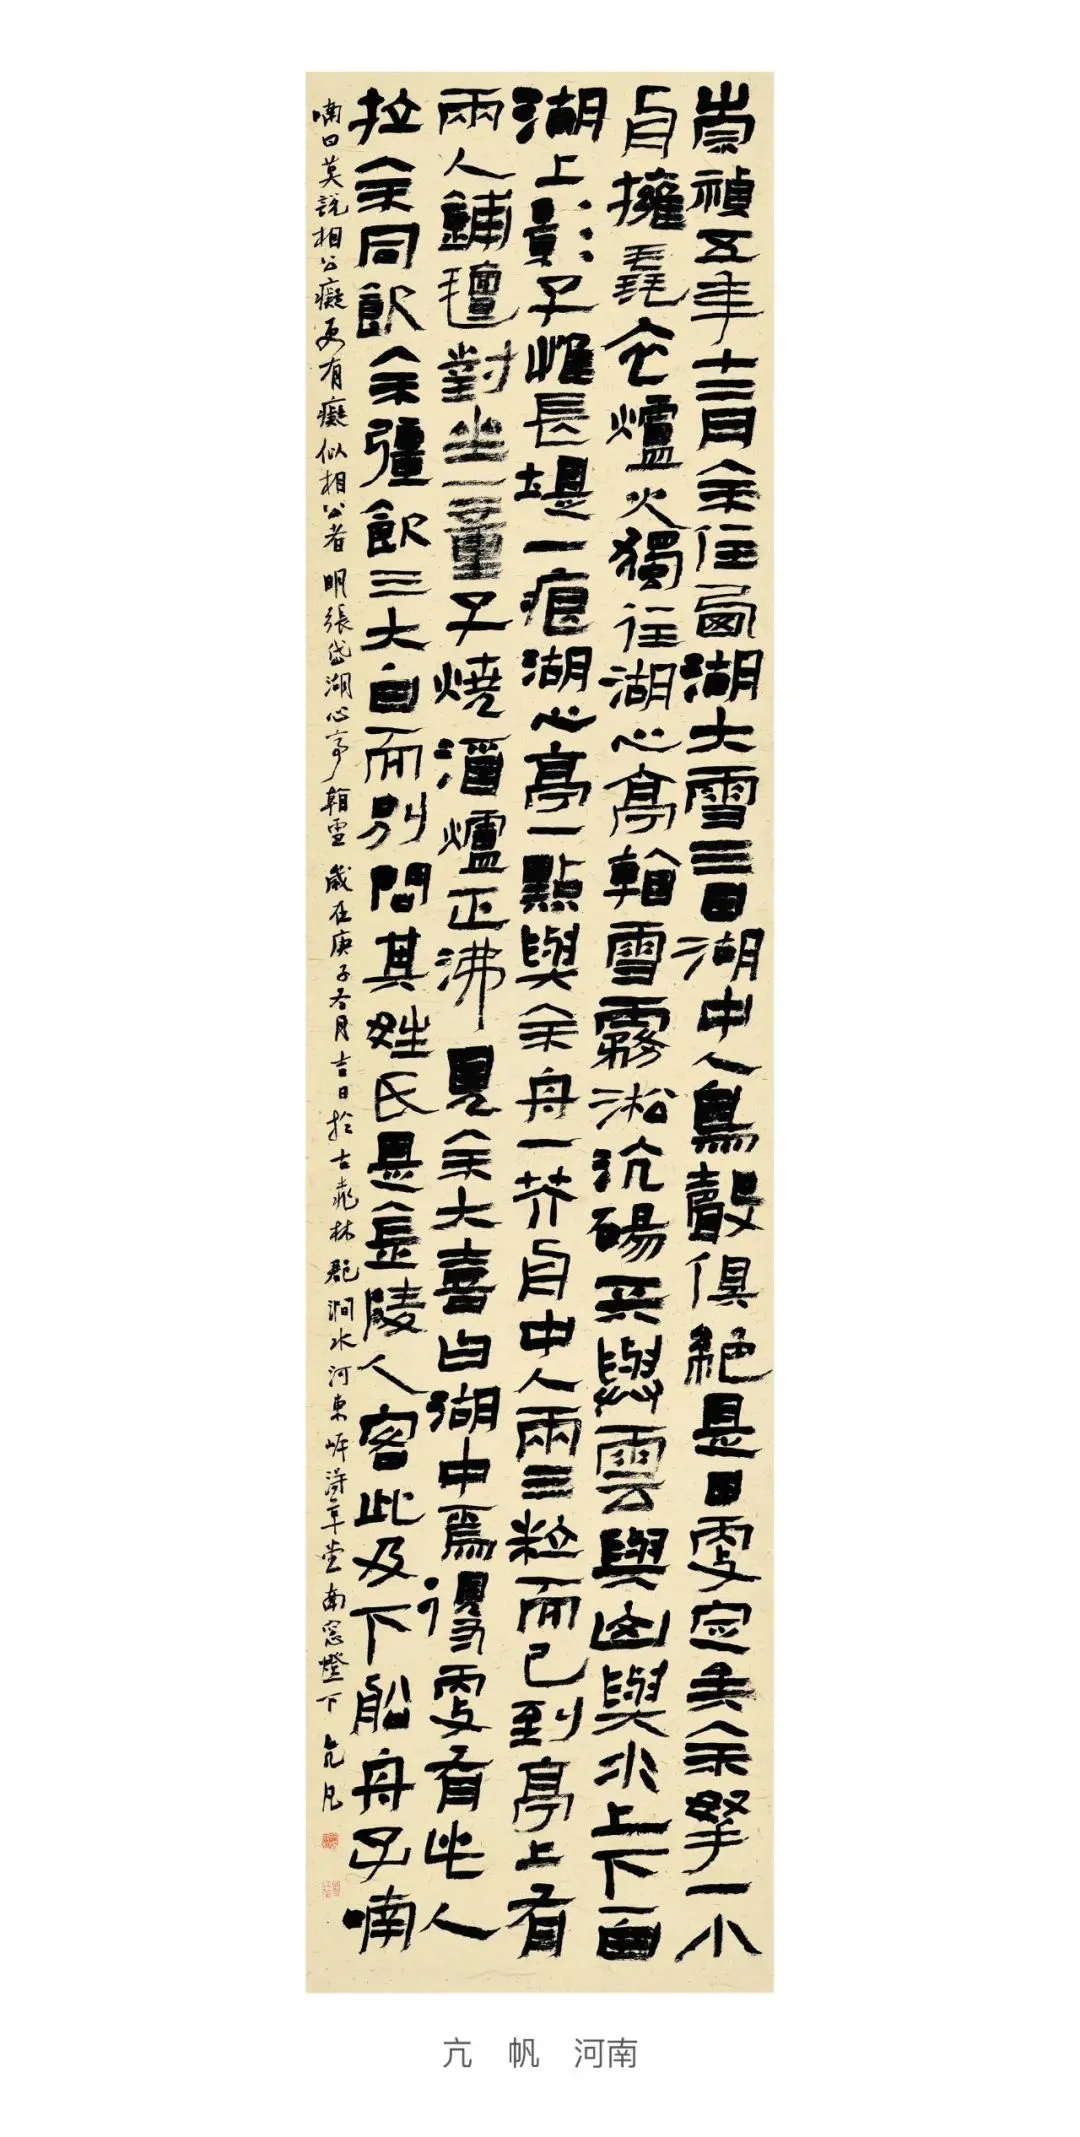 崇禎五年十二月余住西湖大雪三日湖中人鳥聲俱絕是日更定矣余拏一小
舟擁毳衣爐火獨往湖心亭看雪霧淞沆碭天與雲與山與水上下一白
湖上影子惟長堤一痕湖心亭一點與余舟一芥舟中人兩三粒而已到亭上有
兩人鋪氈對坐一童子燒酒爐正沸見余大喜曰湖中焉得更有此人
拉余同飲余彊飲三大白而別問其姓氏是金陵人客此及下船舟子喃
喃曰莫說相公癡更有癡似相公者 明張岱湖心亭看雪 歲在庚子冬月吉日於古桃林郡澗水河東岸草堂南窓燈下 亢凡
亢 帆 河南